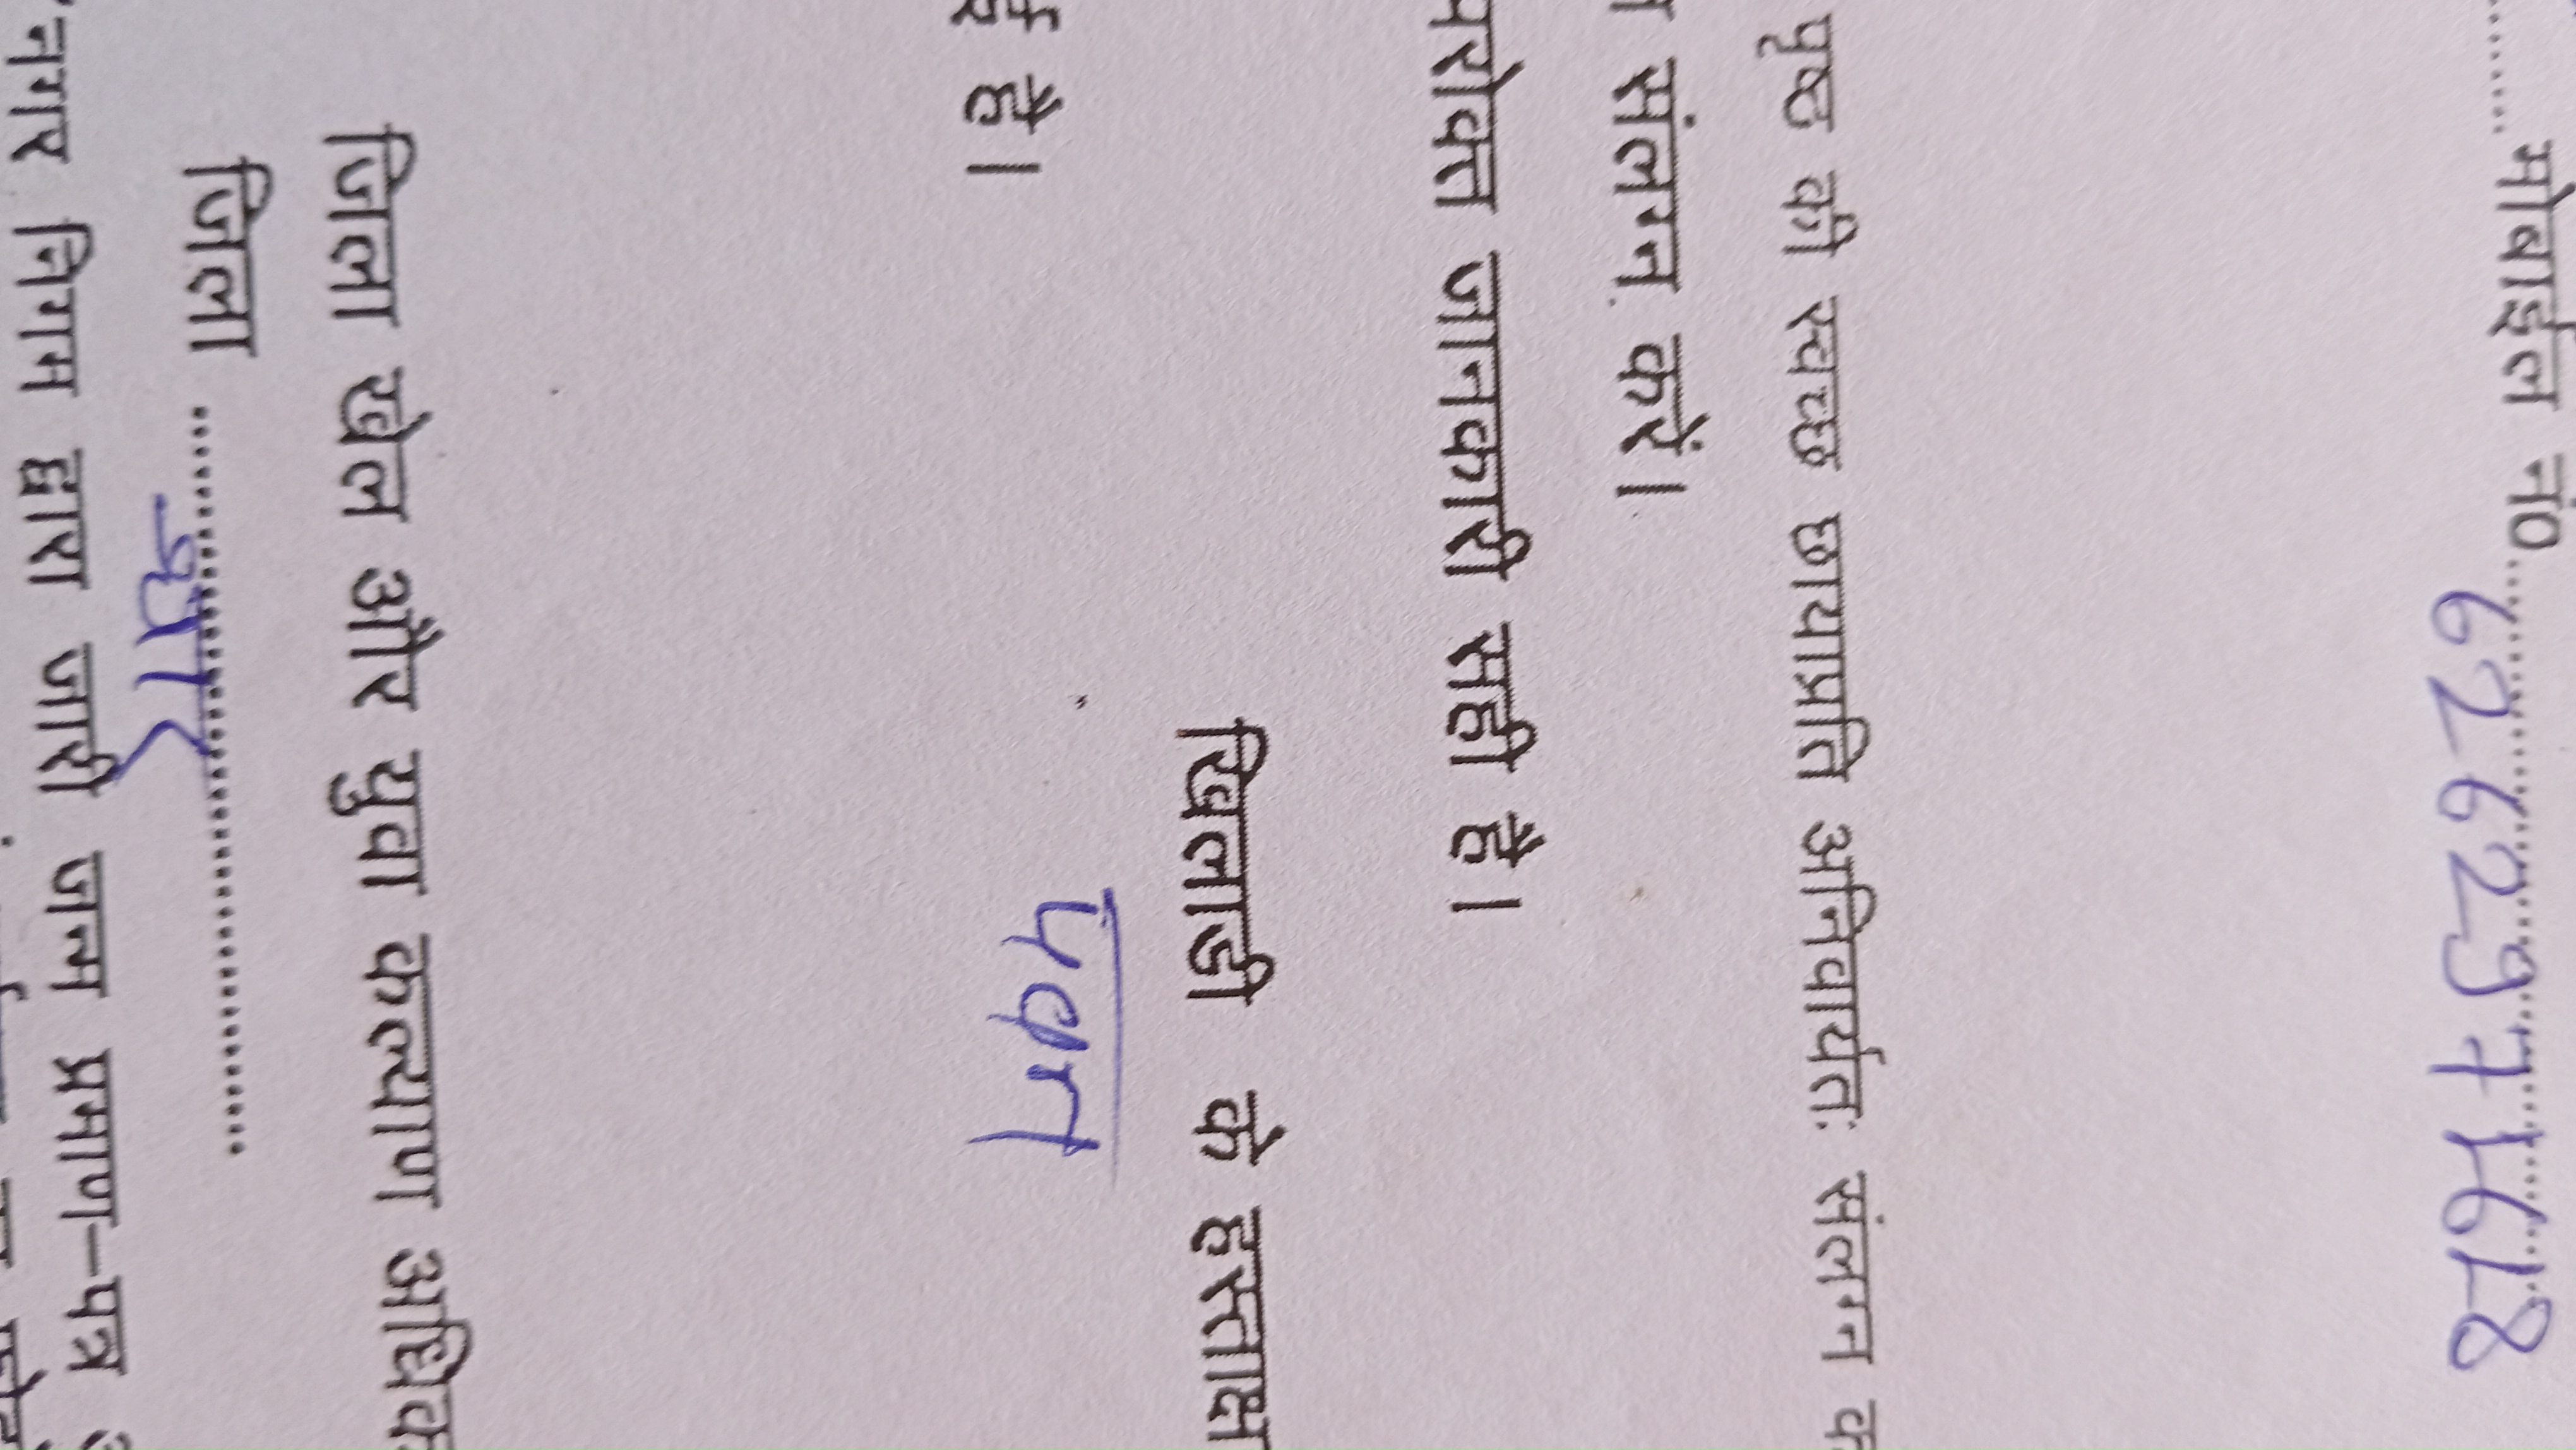 मोबाईल नं0 6262971618
पृष्ठ की स्वच्छ छायाप्रति अनिवार्यतः संलग्न
संलग्न करें।
जानकारी सही है।
खिलाडी के हस्ताक्ष
पवन
है।
जिला खेल और युवा कल्याण
जिला धार
नगर निगम द्वारा जारी जन्म प्रमाण-पत्र